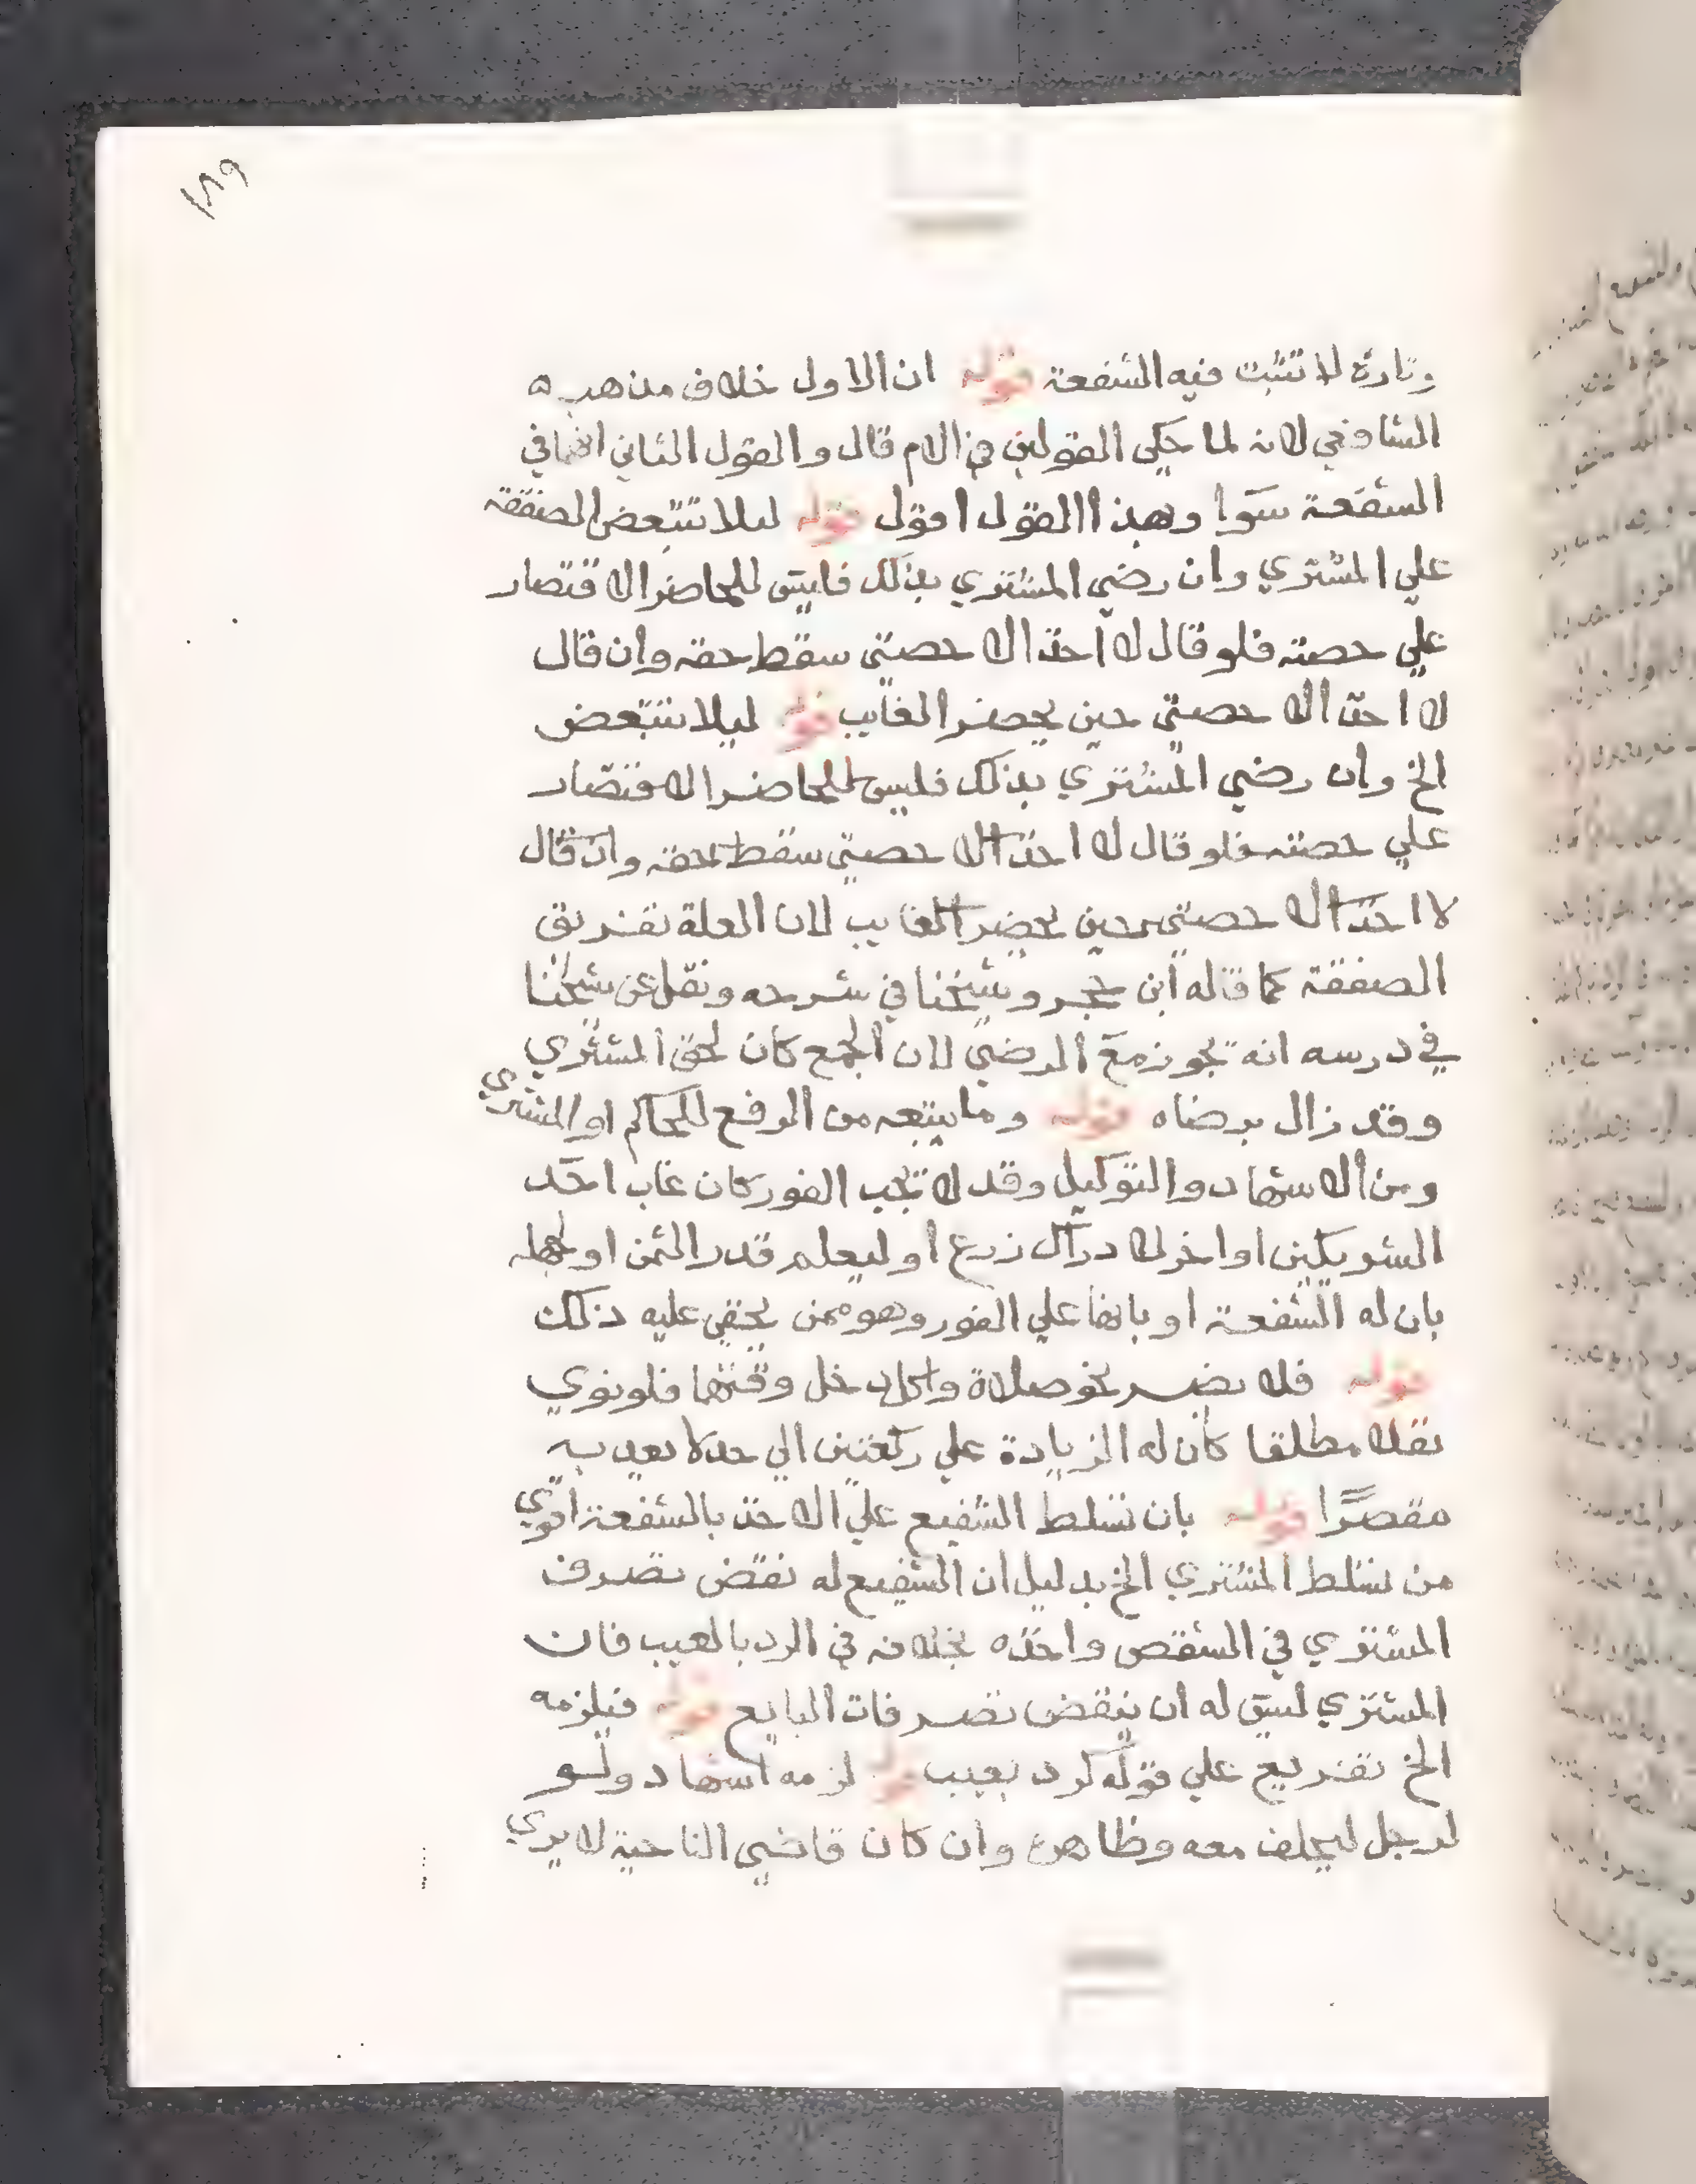 ١٨٩
وتارة لا تثبت فيه الشفعة قوله ان الاول خلاف مذهب ه
الشافعي لانه لما حكى القولين في الام قال والقول الثاني انهما في
الشفعة سوا وبهذا القول اقول قوله ليلا تتبعض الصفقة
علي المشتري وان رضي المشتري بذلك فليس للحاضر الاقتصار
علي حصته فلو قال لا اخذ الا حصتي سقط حقه وان قال
لا اخذ الا حصتي حين يحضر الغايب قوله ليلا تتبعض
الخ وان رضي المشتري بذلك فليس للحاضر الاقتصار
علي حصته فلو قال لا اخذ الا حصتي سقط حقه وان قال
لا اخذ الا حصتي حين يحضر الغايب لان العلة تفريق
الصفقة كما قاله ابن حجر وشيخنا في شرحه ونقل عن شيخنا
في درسه انه يجوز مع الرضي لان الجمع كان لحق المشتري
وقد زال برضاه قوله وما يتبعه من الرفع للحاكم او المشتري
ومن الاشهاد والتوكيل وقد لا يجب الفور كان غاب احد
الشريكين او اخر لادراك زرع او ليعلم قدر الثمن او لجهله
بان له الشفعة او بانها علي الفور وهو ممن يخفي عليه ذلك
قوله فلا يضر نحو صلاة واكل دخل وقتهما فلو نوي
نفلا مطلقا كان له الزيادة علي ركعتين الي حد لا يعد به
مقصرا قوله بان تسلط الشفيع علي الاخذ بالشفعة اقوي
من تسلط المشتري الخ بدليل ان الشفيع له نقض تصرف
المشتري في الشقص واخذه بخلافه في الرد بالعيب فان
المشتري ليس له ان ينقض تصرفات البايع قوله فيلزمه
الخ تفريع علي قوله كرد بعيب قوله لزمه اشهاد ولو
لرجل ليحلف معه وظاهره وان كان قاضي الناحية لا يري